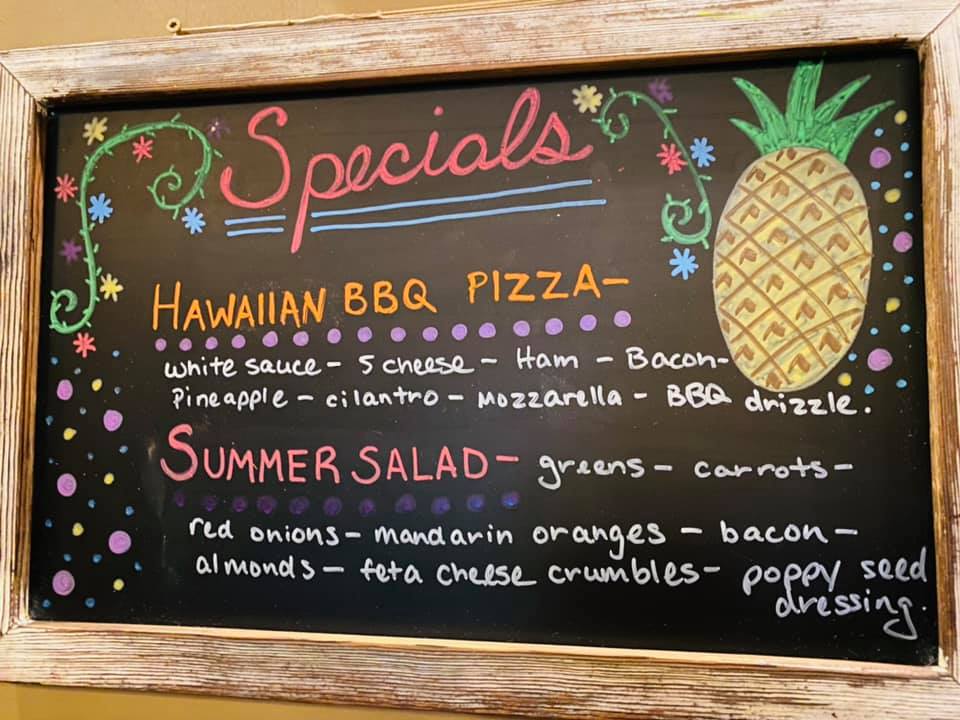 Specials
HAWAIIAN BBQ PIZZA-
white sauce - 5 cheese - Ham - Bacon-
Pineapple - cilantro - mozzarella - BBQ drizzle.
SUMMER SALAD- greens - carrots -
red onions - mandarin oranges - bacon -
almonds - feta cheese crumbles - poppy seed
dressing.